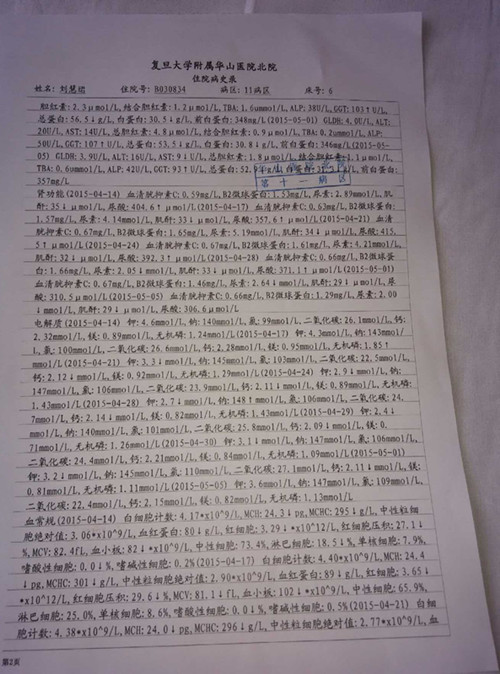 复旦大学附属华山医院北院
住院病史录
姓名: 刘慧珺 住院号: B030834 病区: 11病区 床号: 6
胆红素: 2.3μmol/L, 结合胆红素: 1.2μmol/L, TBA: 1.6ummol/L, ALP: 38U/L, GGT: 103↑U/L,
总蛋白: 56.5↓g/L, 白蛋白: 30.5↓g/L, 前白蛋白: 348mg/L(2015-05-01) GLDH: 4.0U/L, ALT:
20U/L, AST: 14U/L, 总胆红素: 4.8μmol/L, 结合胆红素: 0.9μmol/L, TBA: 0.2ummol/L, ALP:
50U/L, GGT: 107↑U/L, 总蛋白: 53.5↓g/L, 白蛋白: 30.8↓g/L, 前白蛋白: 346mg/L(2015-05-
05) GLDH: 3.9U/L, ALT: 16U/L, AST: 9↓U/L, 总胆红素: 1.8μmol/L, 结合胆红素: 1.1μmol/L,
TBA: 0.6ummol/L, ALP: 42U/L, GGT: 93↑U/L, 总蛋白: 52. g/L, 前白蛋白:
357mg/L
第十一病区
肾功能(2015-04-14) 血清胱抑素C: 0.59mg/L, B2微球蛋白: 1.53mg/L, 尿素: 2.89mmol/L, 肌
酐: 35↓μmol/L, 尿酸: 404.6↑μmol/L(2015-04-17) 血清胱抑素C: 0.63mg/L, B2微球蛋白:
1.57mg/L, 尿素: 4.14mmol/L, 肌酐: 33↓μmol/L, 尿酸: 357.6↑μmol/L(2015-04-21) 血清
胱抑素C: 0.67mg/L, B2微球蛋白: 1.65mg/L, 尿素: 5.19mmol/L, 肌酐: 34↓μmol/L, 尿酸: 415.
5↑μmol/L(2015-04-24) 血清胱抑素C: 0.67mg/L, B2微球蛋白: 1.61mg/L, 尿素: 4.21mmol/L,
肌酐: 32↓μmol/L, 尿酸: 392.3↑μmol/L(2015-04-28) 血清胱抑素C: 0.66mg/L, B2微球蛋白
: 1.66mg/L, 尿素: 2.05↓mmol/L, 肌酐: 33↓μmol/L, 尿酸: 371.1↑μmol/L(2015-05-01)
血清胱抑素C: 0.67mg/L, B2微球蛋白: 1.46mg/L, 尿素: 2.64↓mmol/L, 肌酐: 29↓μmol/L, 尿
酸: 310.5μmol/L(2015-05-05) 血清胱抑素C: 0.66mg/L, B2微球蛋白: 1.29mg/L, 尿素: 2.00
↓mmol/L, 肌酐: 29↓μmol/L, 尿酸: 306.6μmol/L
电解质(2015-04-14) 钾: 4.6mmol/L, 钠: 140mmol/L, 氯: 99mmol/L, 二氧化碳: 26.1mmol/L, 钙:
2.32mmol/L, 镁: 0.89mmol/L, 无机磷: 1.24mmol/L(2015-04-17) 钾: 4.3mmol/L, 钠: 143mmol/
L, 氯: 100mmol/L, 二氧化碳: 26.6mmol/L, 钙: 2.28mmol/L, 镁: 0.95mmol/L, 无机磷: 1.85↑
mmol/L(2015-04-21) 钾: 3.3↓mmol/L, 钠: 145mmol/L, 氯: 103mmol/L, 二氧化碳: 22.5mmol/L,
钙: 2.12↓mmol/L, 镁: 0.92mmol/L, 无机磷: 1.29mmol/L(2015-04-24) 钾: 2.9↓mmol/L, 钠:
147mmol/L, 氯: 106mmol/L, 二氧化碳: 23.9mmol/L, 钙: 2.11↓mmol/L, 镁: 0.89mmol/L, 无机磷:
1.43mmol/L(2015-04-28) 钾: 2.7↓mmol/L, 钠: 148↑mmol/L, 氯: 106mmol/L, 二氧化碳: 24.
7mmol/L, 钙: 2.14↓mmol/L, 镁: 0.82mmol/L, 无机磷: 1.43mmol/L(2015-04-29) 钾: 2.4↓
mmol/L, 钠: 140mmol/L, 氯: 101mmol/L, 二氧化碳: 25.8mmol/L, 钙: 2.09↓mmol/L, 镁: 0.
71mmol/L, 无机磷: 1.26mmol/L(2015-04-30) 钾: 3.1↓mmol/L, 钠: 147mmol/L, 氯: 106mmol/L,
二氧化碳: 24.4mmol/L, 钙: 2.21mmol/L, 镁: 0.84mmol/L, 无机磷: 1.09mmol/L(2015-05-01)
钾: 3.2↓mmol/L, 钠: 145mmol/L, 氯: 110mmol/L, 二氧化碳: 27.1mmol/L, 钙: 2.11↓mmol/L, 镁:
0.81mmol/L, 无机磷: 1.11mmol/L(2015-05-05) 钾: 3.6mmol/L, 钠: 147mmol/L, 氯: 109mmol/L,
二氧化碳: 22.4mmol/L, 钙: 2.15mmol/L, 镁: 0.82mmol/L, 无机磷: 1.13mmol/L
血常规(2015-04-14) 白细胞计数: 4.17*x10^9/L, MCH: 24.3↓pg, MCHC: 295↓g/L, 中性粒细
胞绝对值: 3.06*x10^9/L, 血红蛋白: 80↓g/L, 红细胞: 3.29↓*x10^12/L, 红细胞压积: 27.1↓
%, MCV: 82.4fL, 血小板: 82↓*x10^9/L, 中性细胞: 73.4%, 淋巴细胞: 18.5↓%, 单核细胞: 7.9%,
嗜酸性细胞: 0.0↓%, 嗜碱性细胞: 0.2%(2015-04-17) 白细胞计数: 4.40*x10^9/L, MCH: 24.4
↓pg, MCHC: 301↓g/L, 中性粒细胞绝对值: 2.90*x10^9/L, 血红蛋白: 89↓g/L, 红细胞: 3.65↓
*x10^12/L, 红细胞压积: 29.6↓%, MCV: 81.1↓fL, 血小板: 102↓*x10^9/L, 中性细胞: 65.9%,
淋巴细胞: 25.0%, 单核细胞: 8.6%, 嗜酸性细胞: 0.0↓%, 嗜碱性细胞: 0.5%(2015-04-21) 白细
胞计数: 4.38*x10^9/L, MCH: 24.0↓pg, MCHC: 296↓g/L, 中性粒细胞绝对值: 2.77*x10^9/L, 血
第2页